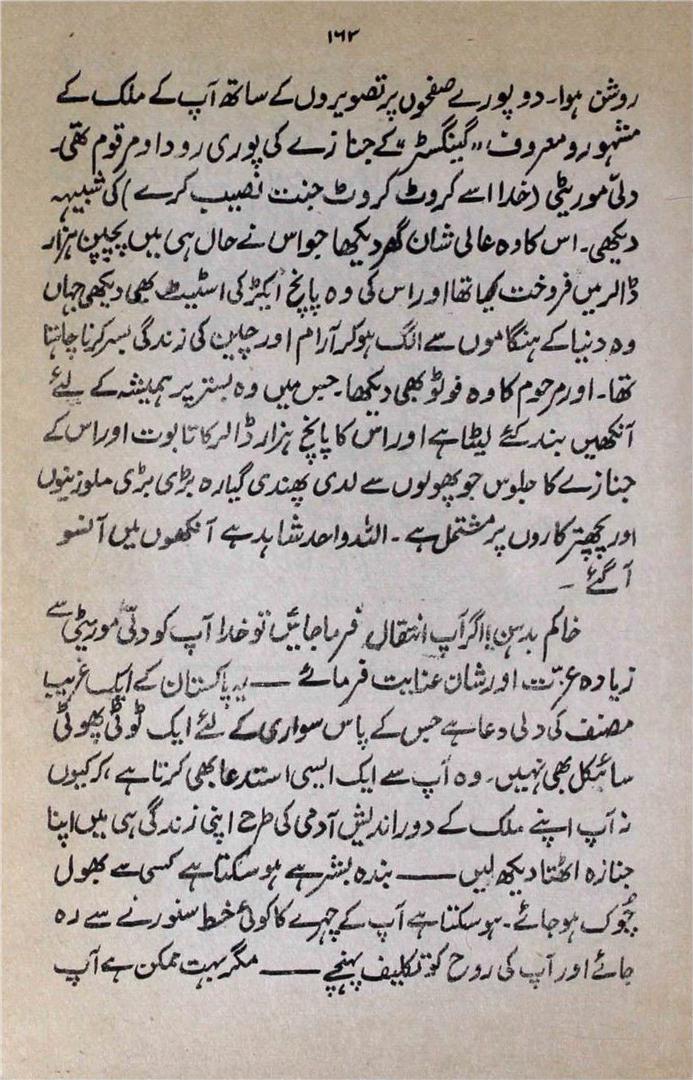 ۱۶۲
روشن ہوا۔ دو پورے صفحوں پر تصویروں کے ساتھ آپ کے ملک کے
مشہور و معروف "گینگسٹر" کے جنازے کی پوری روداد مرقوم تھی۔
دلّی موریٹی (خدا اسے کروٹ کروٹ جنت نصیب کرے) کی شبیہہ
دیکھی۔ اس کا وہ عالی شان گھر دیکھا جو اس نے حال ہی میں پچپن ہزار
ڈالر میں فروخت کیا تھا اور اس کی وہ پانچ ایکڑ کی اسٹیٹ بھی دیکھی جہاں
وہ دنیا کے ہنگاموں سے الگ ہو کر آرام اور چین کی زندگی بسر کرنا چاہتا
تھا۔ اور مرحوم کا وہ فوٹو بھی دیکھا۔ جس میں وہ بستر پر ہمیشہ کے لئے
آنکھیں بند کئے لیٹا ہے اور اس کا پانچ ہزار ڈالر کا تابوت اور اس کے
جنازے کا جلوس جو پھولوں سے لدی پھندی گیارہ بڑی بڑی ملوزینوں
اور پچھتر کاروں پر مشتمل ہے۔ اللہ واحد شاہد ہے آنکھوں میں آنسو
آ گئے۔
خاکم بدہن! اگر آپ انتقال فرما جائیں تو خدا آپ کو دلّی موریٹی سے
زیادہ عزّت اور شان عنایت فرمائے ــــ یہ پاکستان کے ایک غریب
مصنف کی دلی دعا ہے جس کے پاس سواری کے لئے ایک ٹوٹی پھوٹی
سائیکل بھی نہیں۔ وہ آپ سے ایک ایسی استدعا بھی کرتا ہے، کہ کیوں
نہ آپ اپنے ملک کے دور اندیش آدمی کی طرح اپنی زندگی ہی میں اپنا
جنازہ اٹھتا دیکھ لیں ــــ بندہ بشر ہے ہو سکتا ہے کسی سے بھول
چُوک ہو جائے۔ ہو سکتا ہے آپ کے چہرے کا کوئی خط سنورنے سے رہ
جائے اور آپ کی روح کو تکلیف پہنچے ــــ مگر بہت ممکن ہے آپ